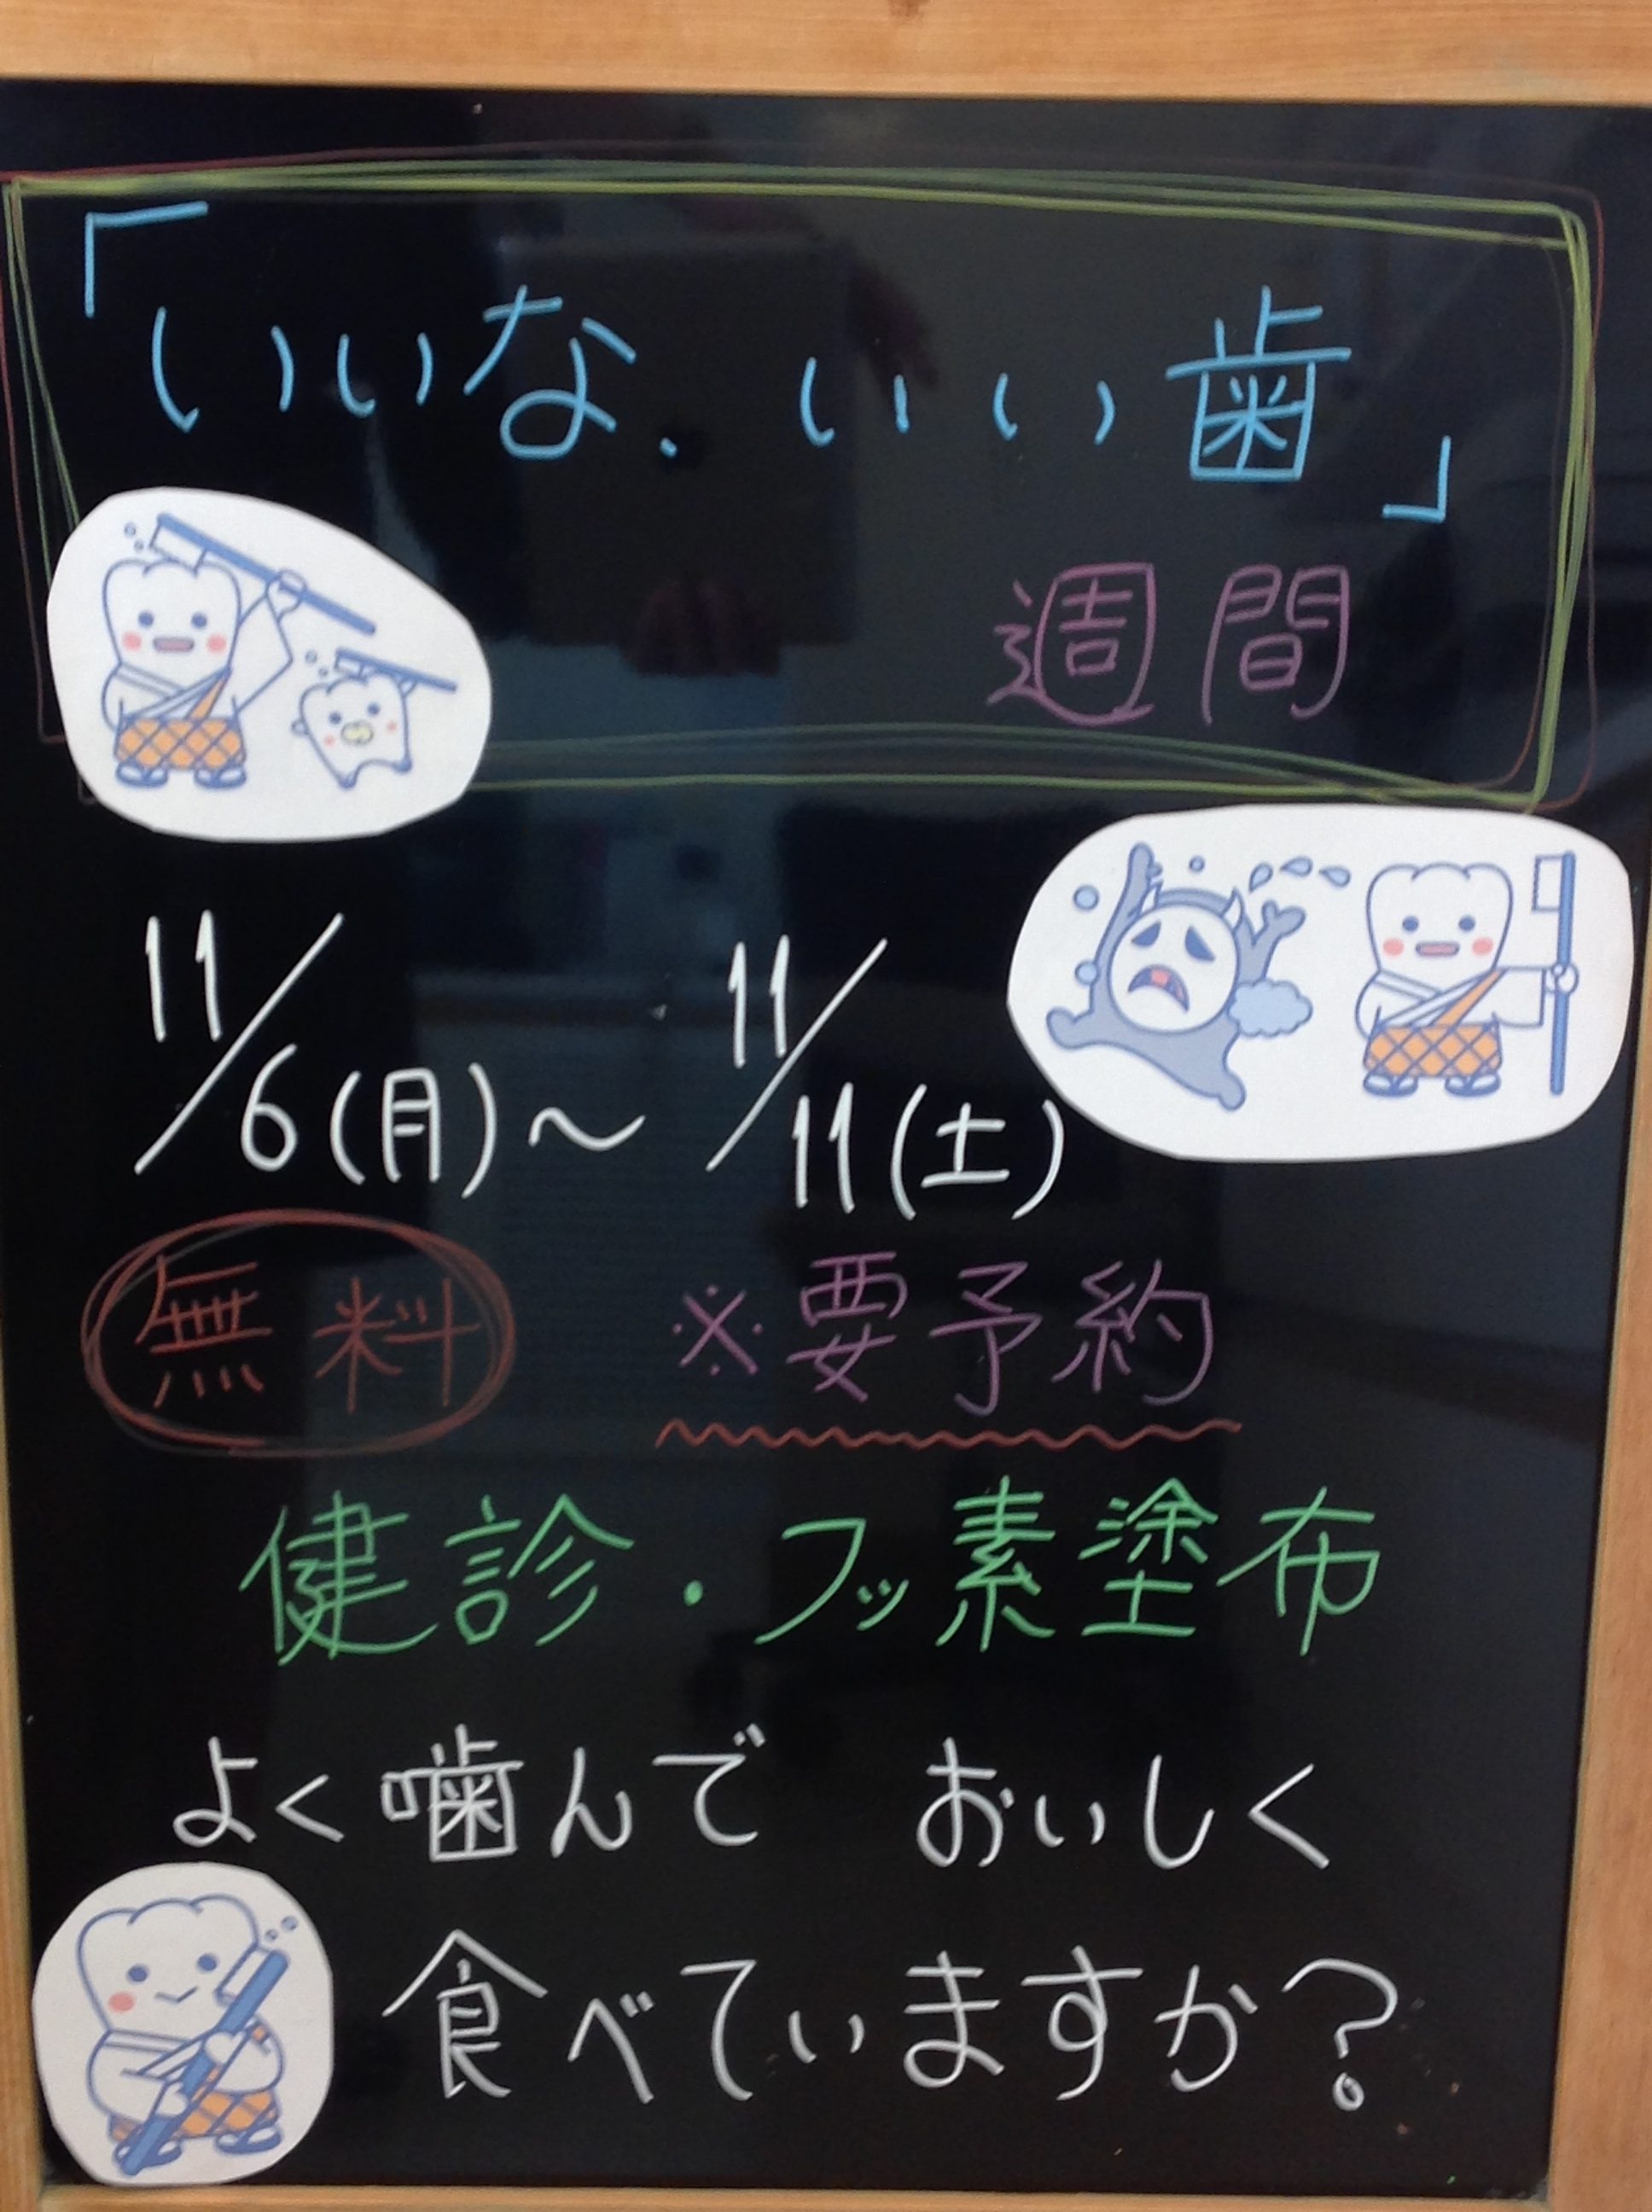 「いいな、いい歯」
週間
11/6(月)～11/11(土)
無料 ※要予約
健診・フッ素塗布
よく噛んで おいしく
食べていますか？